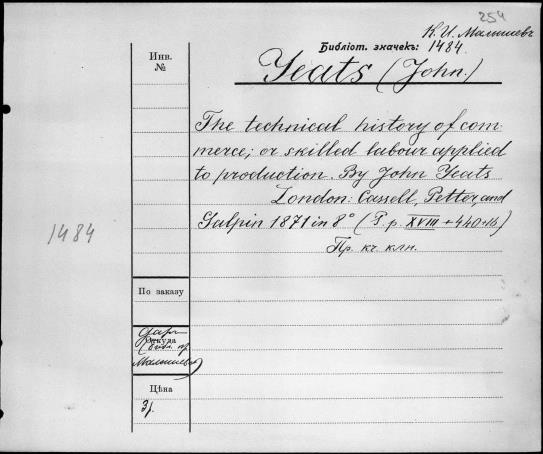 254
К. И. Малышевъ
Библіот. значекъ: 1484.
Инв.
№
Yeats (John.)
The technical history of com-
merce; or skilled labour applied
to production. By John Yeats
London: Cassell, Petter, and
Galpin 1871 in 8° (P. p. XVIII + 440+16)
Пр. къ клн.
1484
По заказу
Откуда
Малышева
Цѣна
3 р.